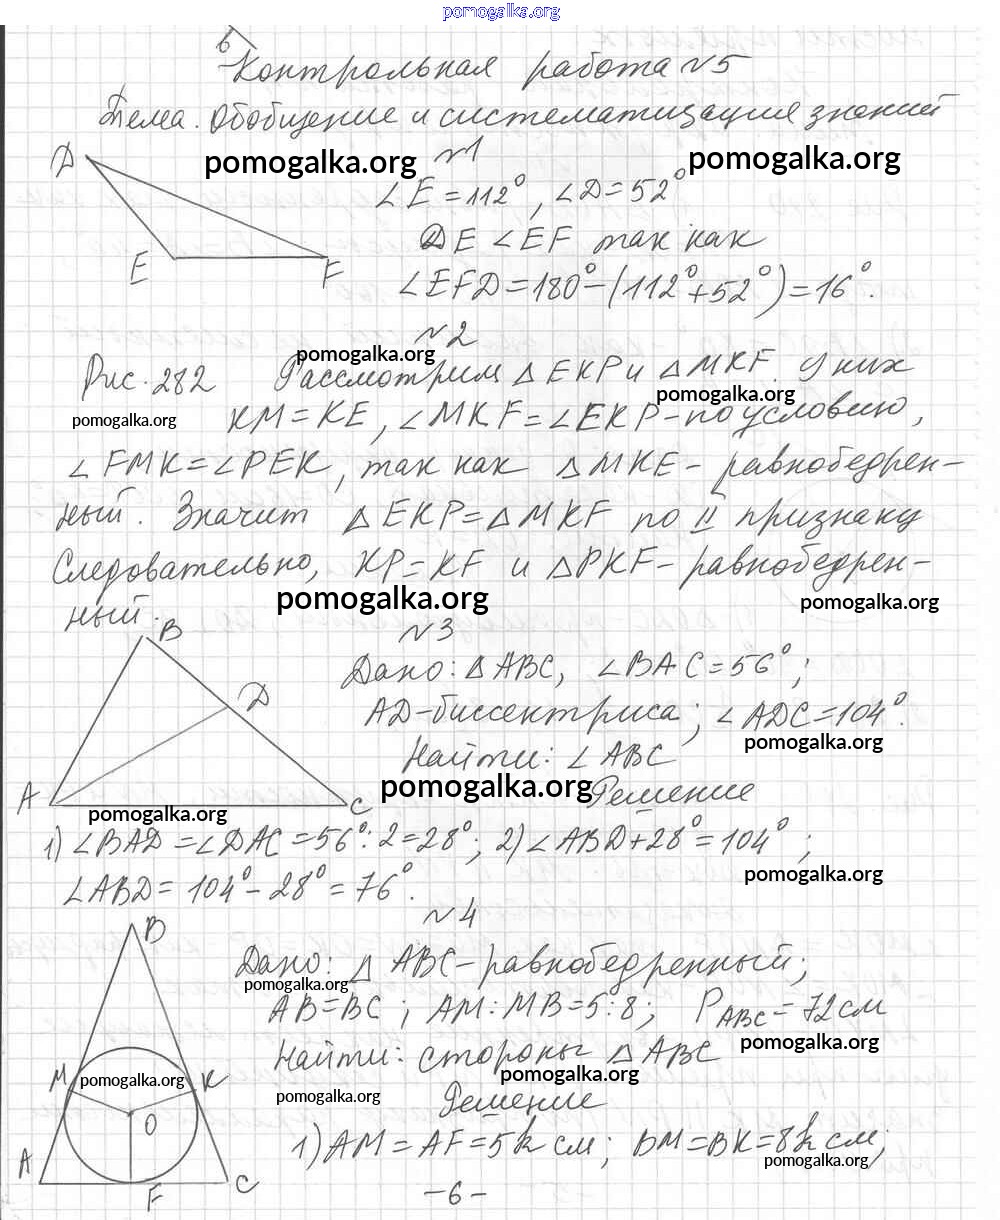 pomogalka.org
б
Контрольная работа №5
Тема. Обобщение и систематизация знаний
pomogalka.org №1 pomogalka.org
D
∠E = 112°, ∠D = 52°
DE < EF так как
E F
∠EFD = 180° - (112° + 52°) = 16°.
№2
pomogalka.org
Рис. 282 Рассмотрим △EKP и △MKF. У них
pomogalka.org
pomogalka.org
KM = KE, ∠MKF = ∠EKP - по условию,
∠FMK = ∠PEK, так как △MKE - равнобедрен-
ный. Значит △EKP = △MKF по II признаку
Следовательно, KP = KF и △PKF - равнобедрен-
pomogalka.org pomogalka.org
ный.
B №3
Дано: △ABC, ∠BAC = 56°;
D
AD - биссектриса; ∠ADC = 104°.
pomogalka.org
Найти: ∠ABC
pomogalka.org
A C Решение
pomogalka.org
1) ∠BAD = ∠DAC = 56° : 2 = 28°; 2) ∠ABD + 28° = 104°;
pomogalka.org
∠ABD = 104° - 28° = 76°.
№4
B
Дано: △ABC - равнобедренный;
pomogalka.org
AB = BC; AM : MB = 5 : 8; P ABC = 72 см
pomogalka.org
Найти: стороны △ABC
pomogalka.org
M pomogalka.org K
pomogalka.org
Решение
O
1) AM = AF = 5k см; BM = BK = 8k см;
pomogalka.org
A F C
- 6 -